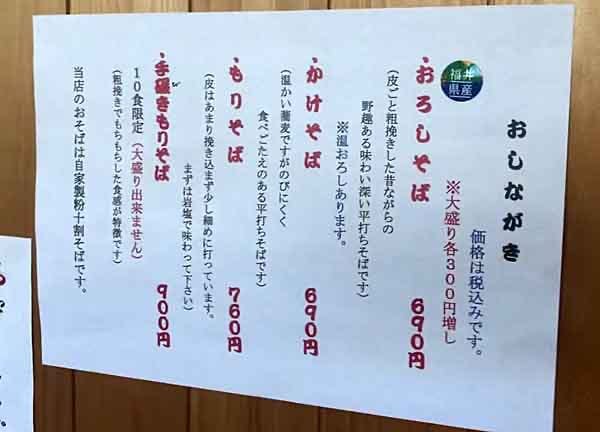 おしながき
価格は税込みです。
※大盛り各300円増し
福井県産
・おろしそば 690円
(皮ごと粗挽きした昔ながらの
野趣ある味わい深い平打ちそばです)
※温おろしあります。
・かけそば 690円
(温かい蕎麦ですがのびにくく
食べごたえのある平打ちそばです)
・もりそば 760円
(皮はあまり挽き込まず少し細めに打っています。
まずは岩塩で味わって下さい)
・手碾きもりそば 900円
び
10食限定(大盛り出来ません)
(粗挽きでもちもちした食感が特徴です)
当店のおそばは自家製粉十割そばです。